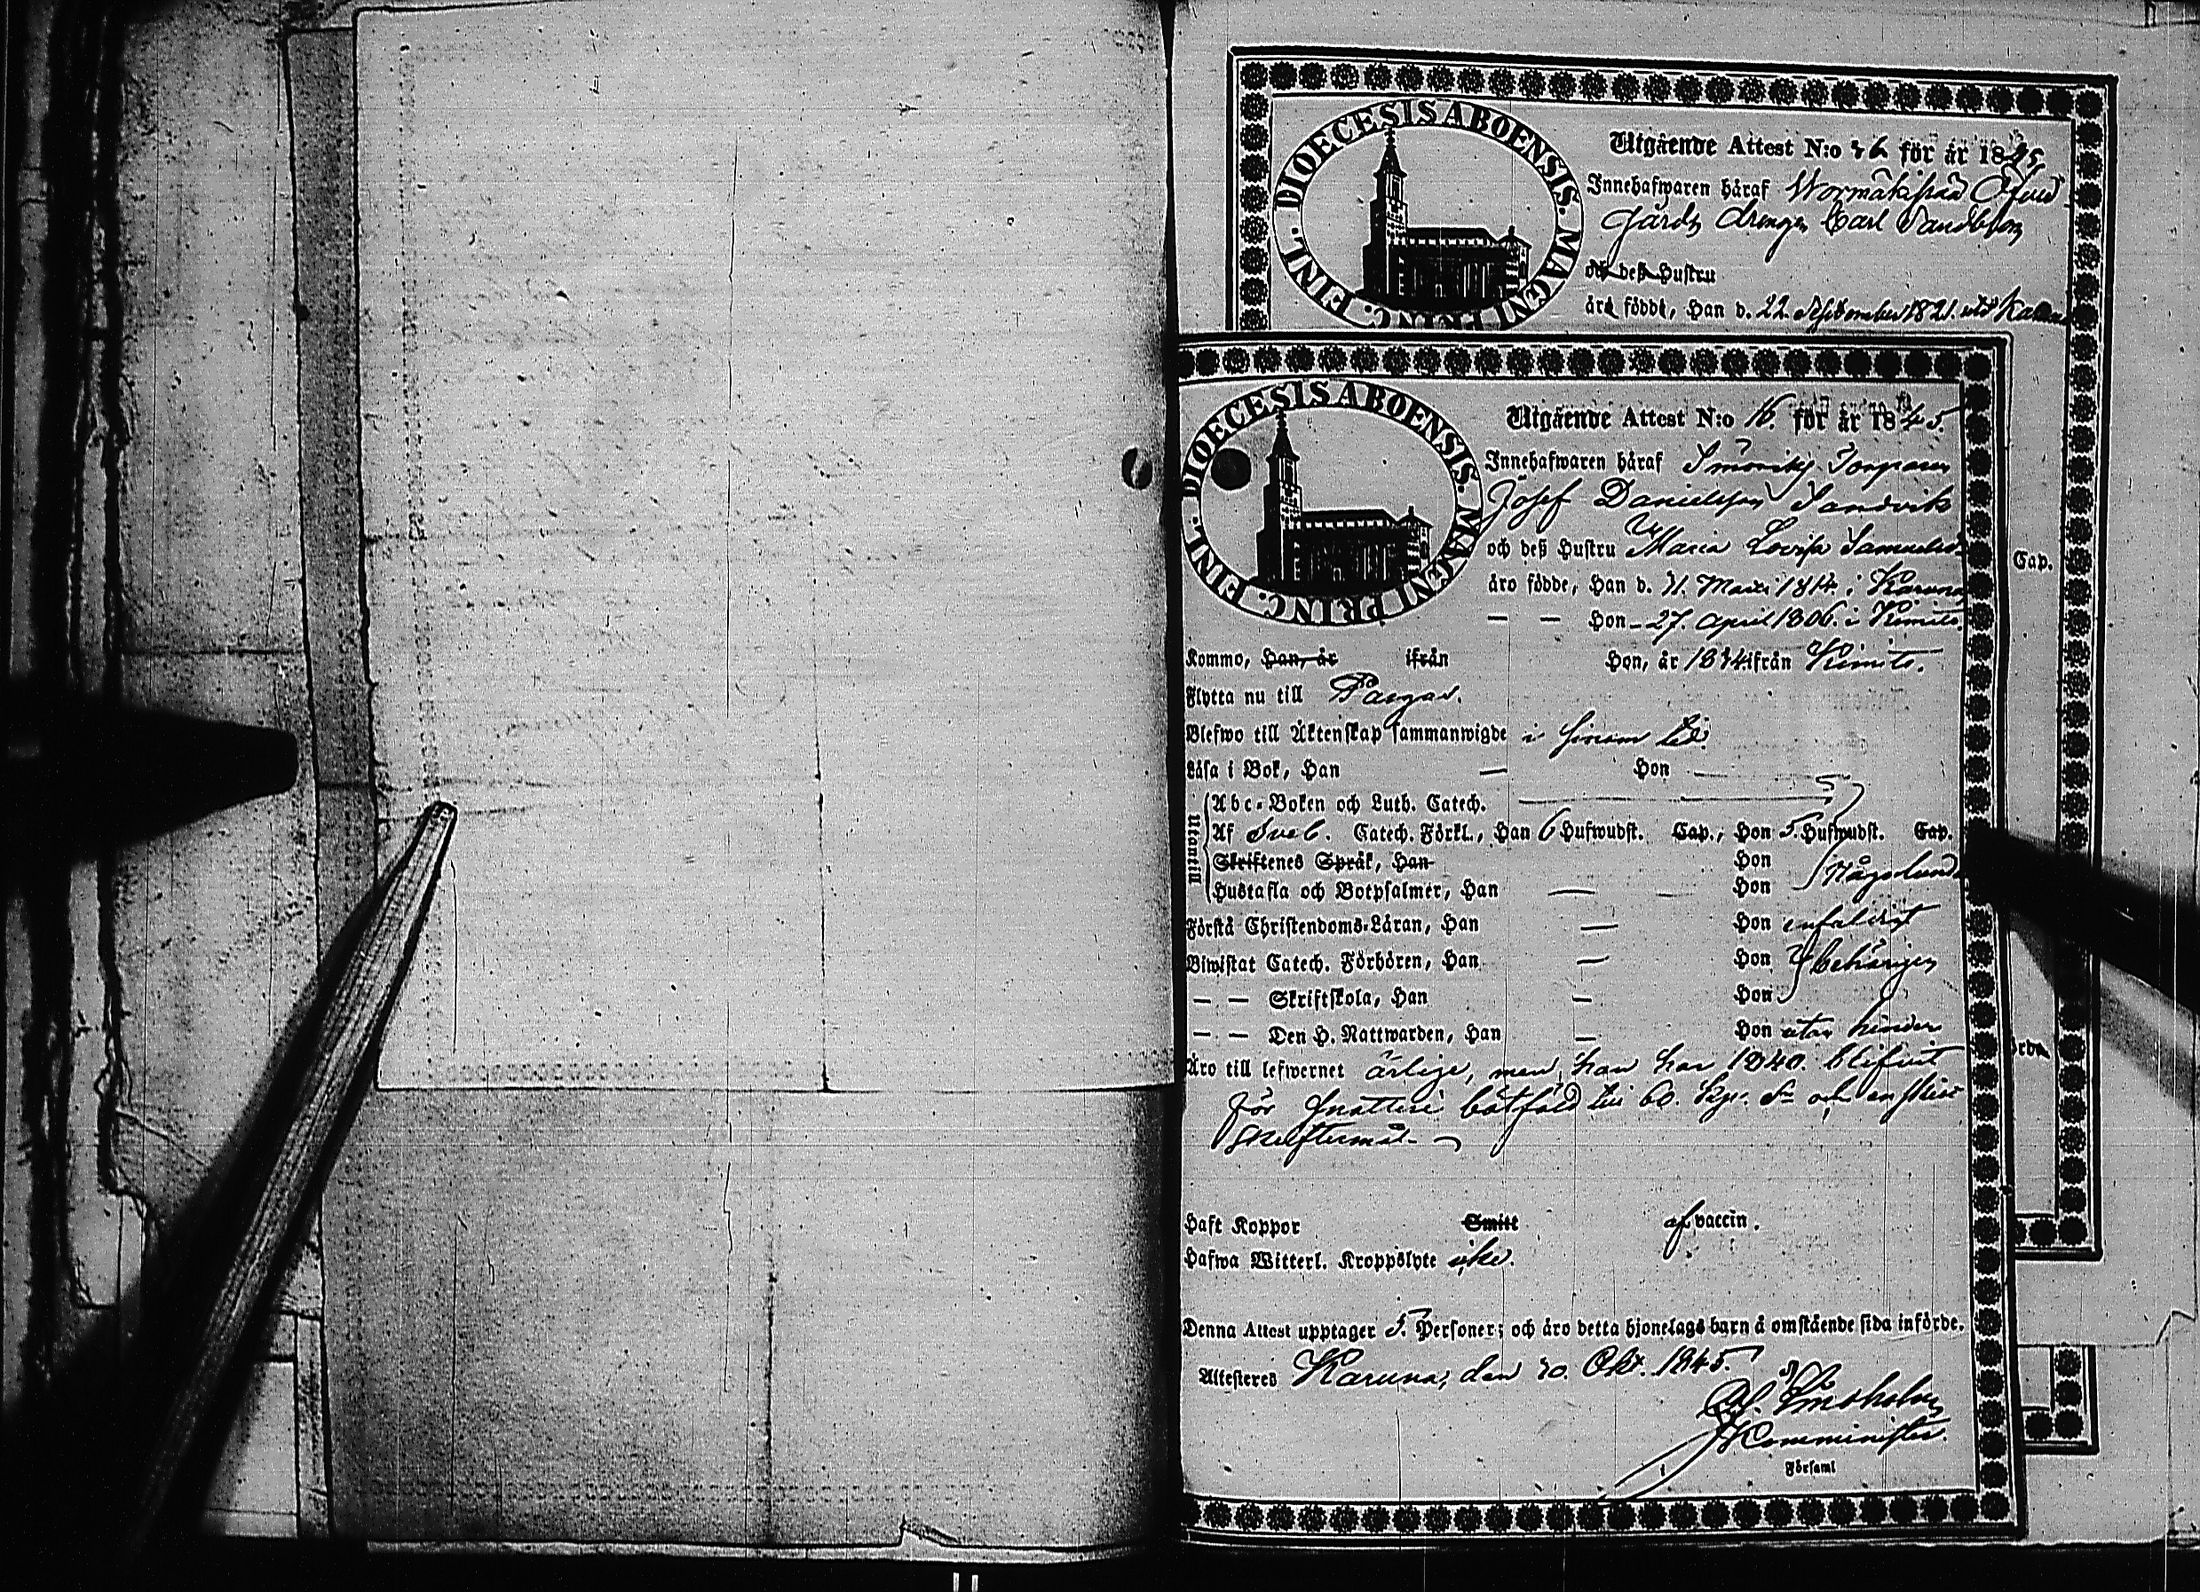 DIOECESIS ABOENSIS. MAGNI PRINC. FINL.
Utgående Attest N:o 26 för år 1845.
Innehafwaren häraf
gårds drengen Carl Sandblom
och deß Hustru
äro födde, Han d. 22. September 1821.
DIOECESIS ABOENSIS. MAGNI PRINC. FINL.
Utgående Attest N:o 16. för år 1845.
Innehafwaren häraf Torparen
Josef Danielsson Sandvik
och deß Hustru Maria Lovisa Samuelsd.
äro födde, Han d. 11. Mars 1814. i Karuna
— — Hon - 27. April 1806. i Kimito.
Kommo, Han, år ifrån Hon, år 1834 ifrån Kimito.
Flytta nu till Pargas.
Blefwo till Äktenskap sammanwigde i sinom tid.
Läsa i Bok, Han — Hon —
Utantill
Abc-Boken och Luth. Catech.
Af Sveb. Catech. Förkl., Han 6 Hufwudst. Cap., Hon 5. Hufwudst. Cap.
Skriftenes Språk, Han Hon
Hustafla och Botpsalmer, Han — Hon Någorlunda
Förstå Christendoms-Läran, Han — Hon enfaldigt
Biwistat Catech. Förhören, Han — Hon behörigen
— — Skriftskola, Han — Hon
— — Den H. Nattwarden, Han — Hon utan hinder
Äro till lefwernet ärlige, men han har 1840. blifvit
för snatteri bötfäld till 60. kop. Sr och enskilt
skriftermål.
Haft Koppor Smitt af vaccin.
Hafwa Witterl. Kroppslyte icke.
Denna Attest upptager 5. Personer; och äro detta hjonelags barn å omstående sida införde.
Attesteres Karuna, den 20. Okt. 1845.
Komminister.
Församl
Cap.